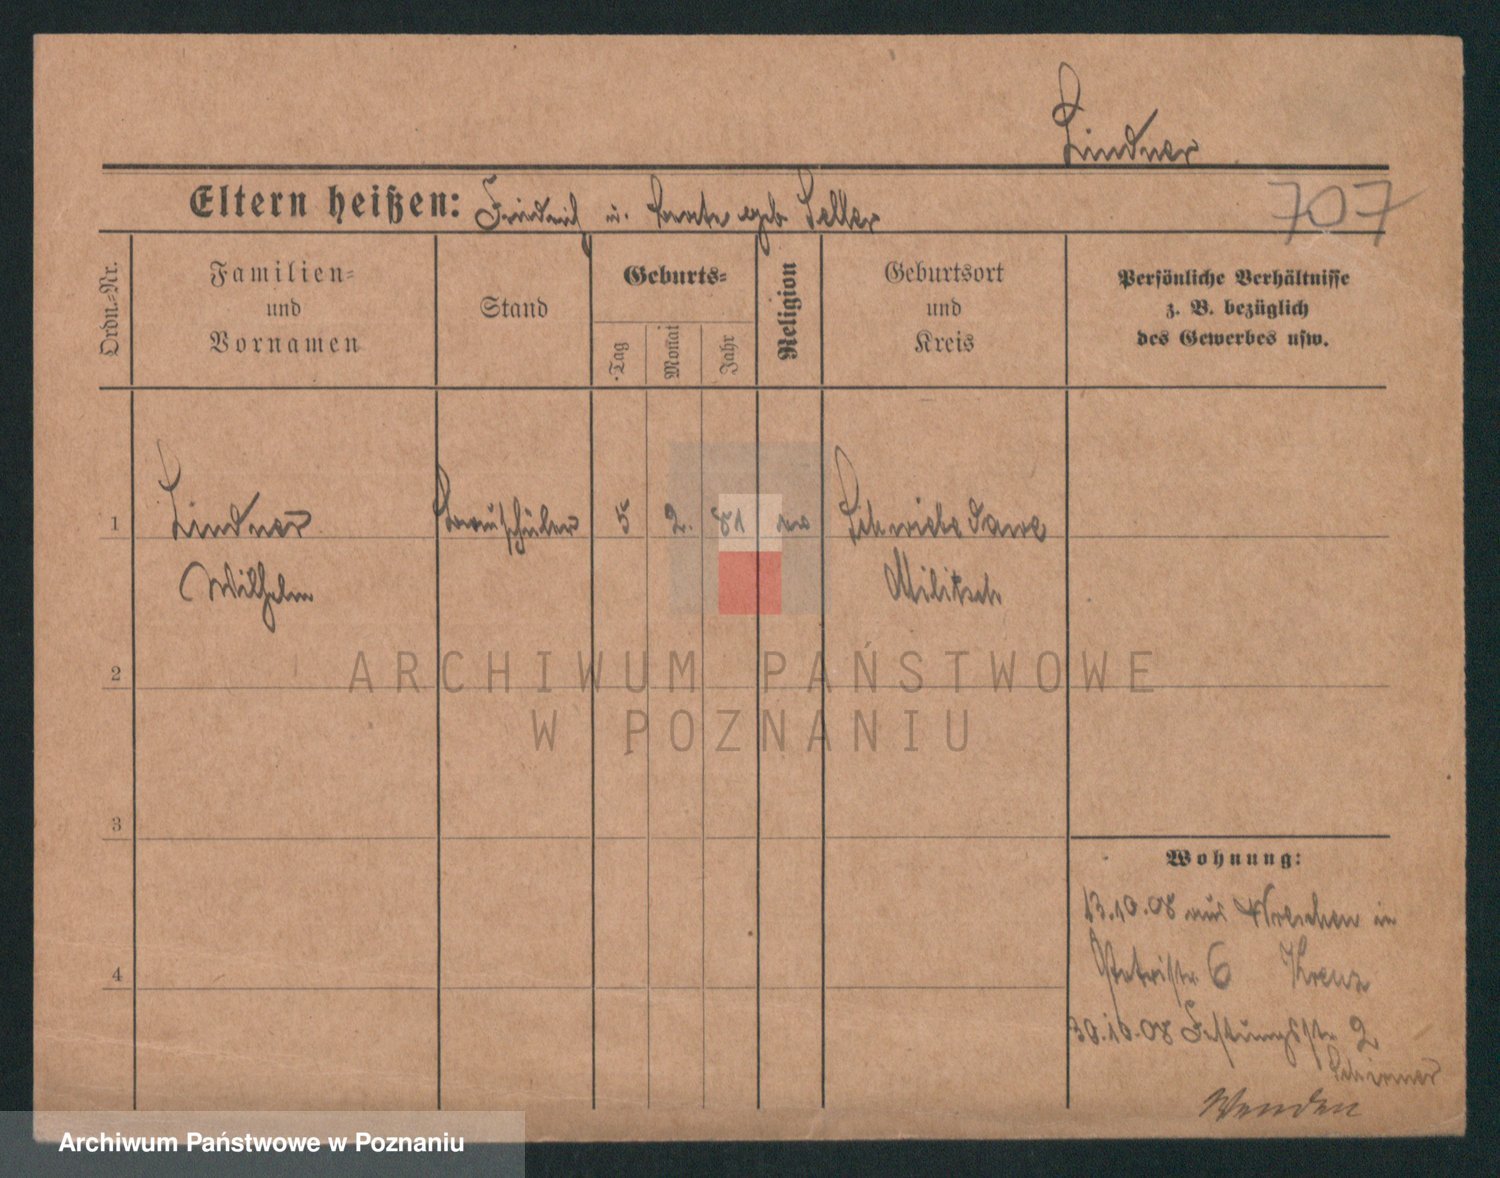 Lindner
Eltern heißen: Friedrich u. geb. Seller
707
Ordn.-Nr.
Familien- und Vornamen
Stand
Geburts-
Tag
Monat
Jahr
Religion
Geburtsort und Kreis
Persönliche Verhältnisse
z. B. bezüglich
des Gewerbes usw.
1
Lindner
Bauschüler
5
2.
81
ev
Schwiebedawe
Wilhelm
Militsch
ARCHIWUM PAŃSTWOWE
W POZNANIU
2
3
4
Wohnung:
13.10.08 aus Wreschen in
Petristr 6 Krenz
30.10.08 Festungsstr 2
Schirmer
Wenden
Archiwum Państwowe w Poznaniu